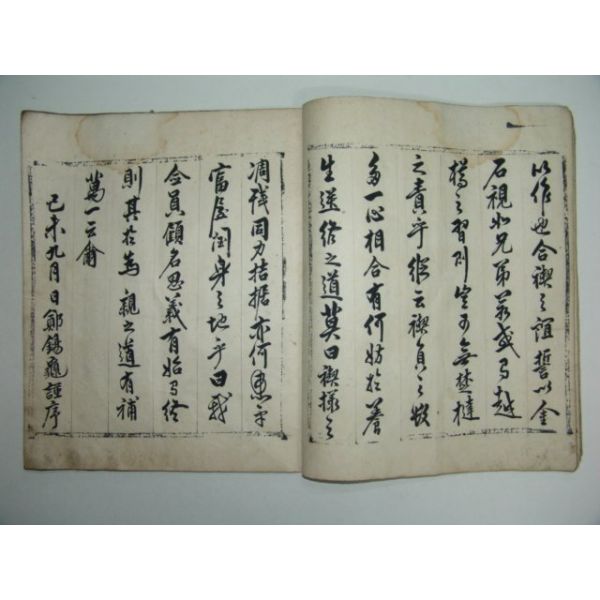 以作也合禊之誼誓以金
石視如兄弟若或有越
標之習則豈可無楚撻
之責乎縱云禊員之數
多一心相合有何妨於養
生送終之道莫曰禊樣之
凋殘同力拮据亦何患乎
富屋潤身之地乎曰我
合員顧名思義有始有終
則其於為親之道有補
萬一云爾
己未九月日鄭錫 謹序